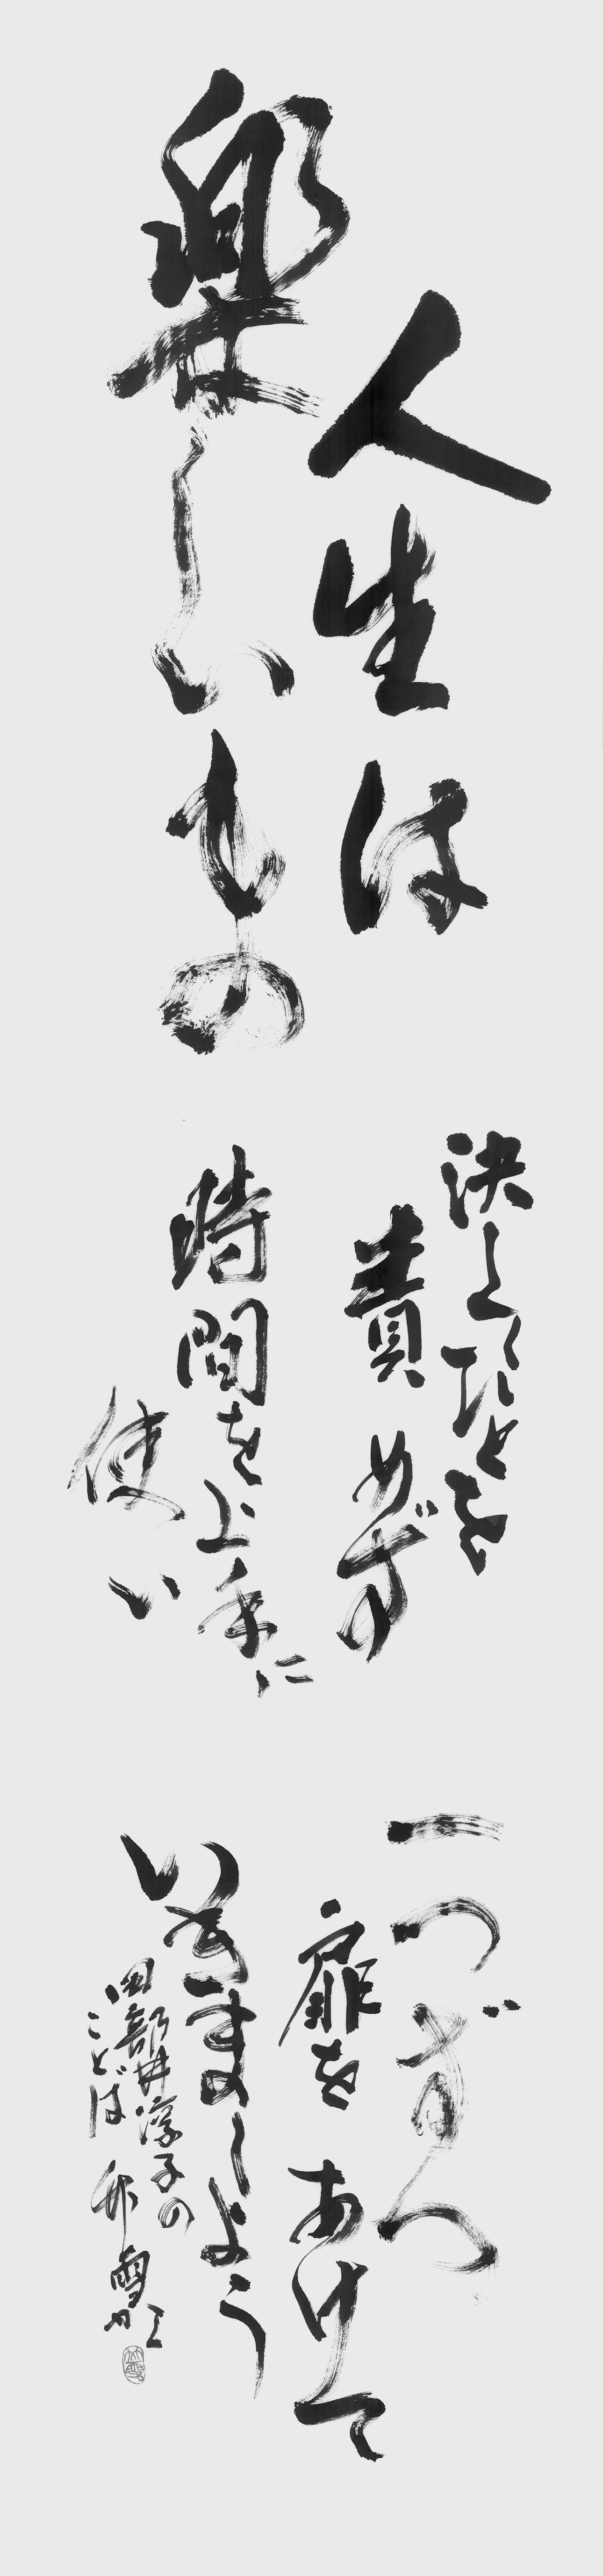 人生は
楽しいもの
決してひとを
責めず
時間を上手に
使い
一つずつ
扉をあけて
いきましょう
田部井淳子の
ことば 竹雪